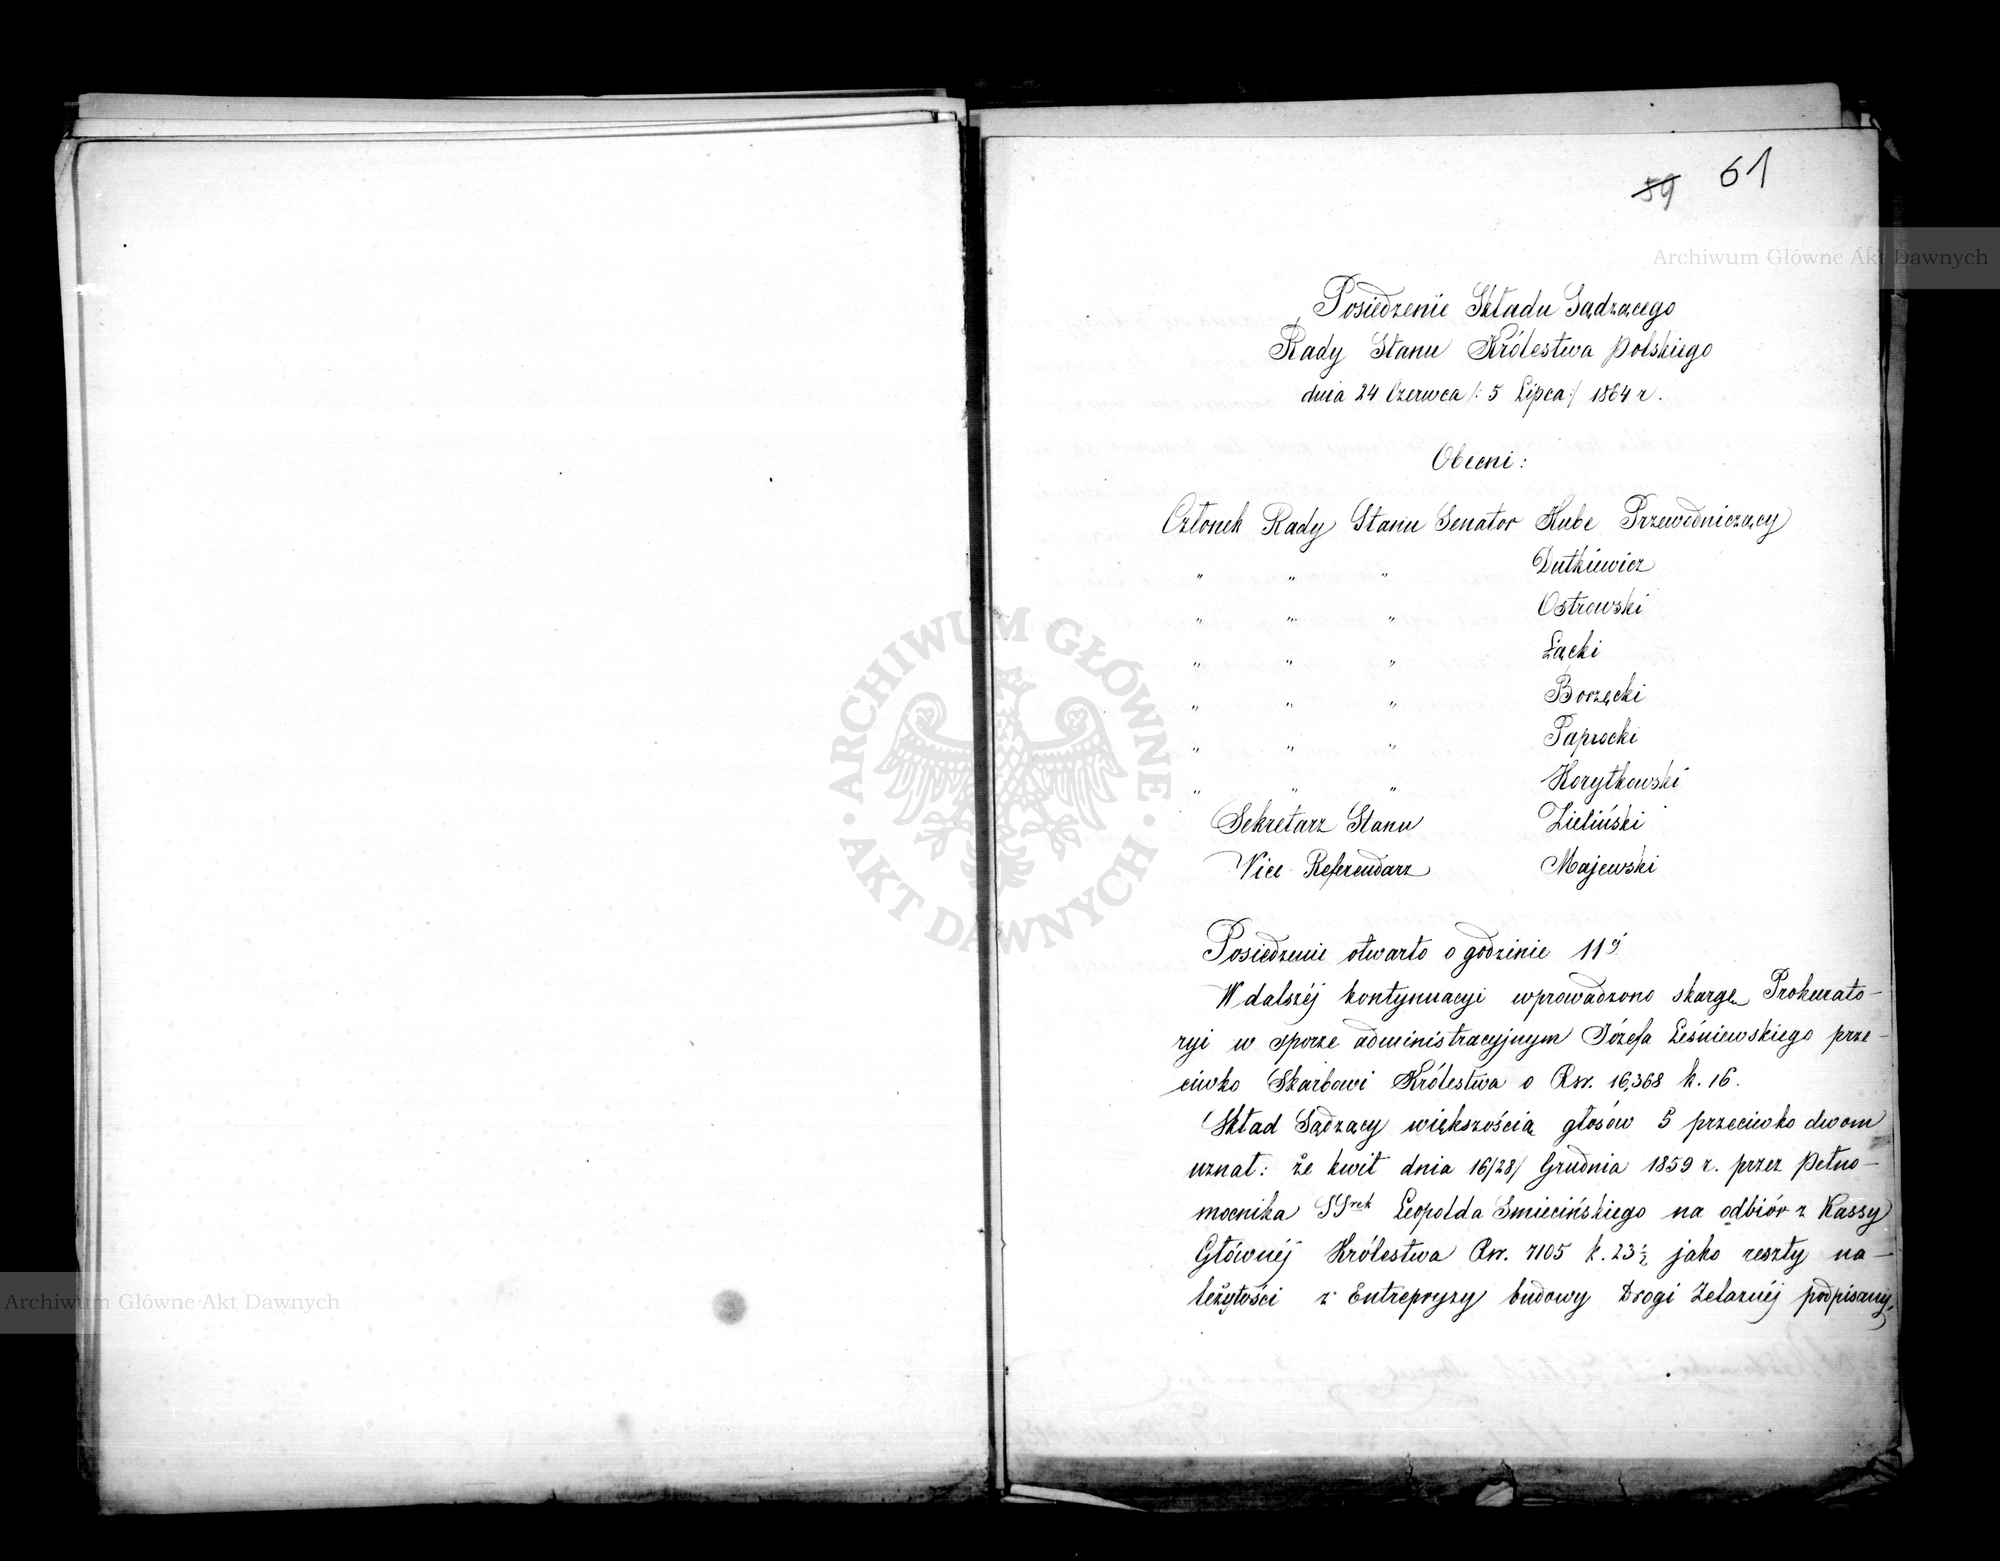 59 61
Posiedzenie Składu Sądzącego
Rady Stanu Królestwa Polskiego
dnia 24 Czerwca /: 5 Lipca :/ 1864 r.
Obecni:
Członek Rady Stanu Senator Hube Przewodniczący
" " " Dutkiewicz
" " " Ostrowski
" " " Łącki
" " " Borzęcki
" " " Paprocki
" " " Korytkowski
Sekretarz Stanu Zieliński
Vice Referendarz Majewski
Posiedzenie otwarto o godzinie 11éj
W dalszéj kontynuacyi wprowadzono skargę Prokurato-
ryi w sporze administracyjnym Józefa Leśniewskiego prze-
ciwko Skarbowi Królestwa o Rsr. 16,368 k. 16.
Skład Sądzący większością głosów 5 przeciwko dwom
uznał: że kwit dnia 16/28/ Grudnia 1859 r. przez Pełno-
mocnika SSrek Leopolda Smiecińskiego na odbiór z Kassy
Głównéj Królestwa Rsr. 7105 k. 23½ jako reszty na-
leżytości z Entrepryzy budowy Drogi Żelaznéj podpisany,
Archiwum Główne Akt Dawnych
Archiwum Główne Akt Dawnych
ARCHIWUM GŁÓWNE AKT DAWNYCH